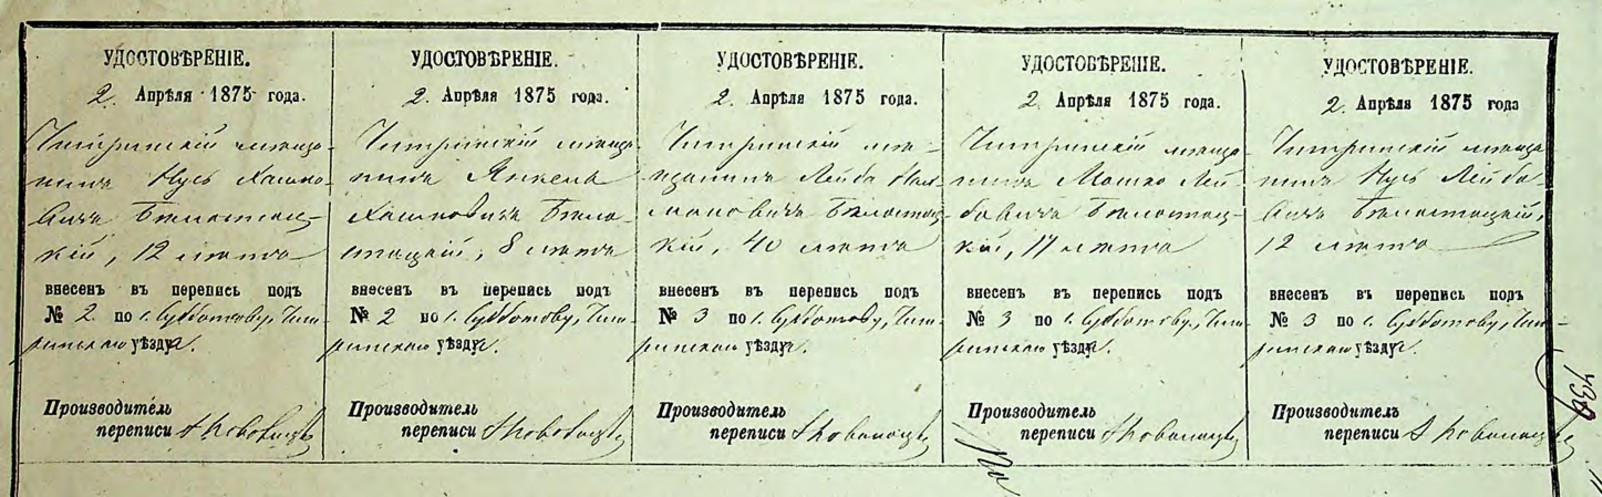 УДОСТОВѢРЕНІЕ.
2. Апрѣля 1875 года.
Чигиринскій мѣща-
нинъ Нусь Хаимо-
вичъ Бѣлостоц-
кій, 12 лѣтъ
внесенъ въ перепись подъ
№ 2 по с. Субботову, Чиги-
ринскаго уѣзда.
Производитель
переписи
УДОСТОВѢРЕНІЕ.
2. Апрѣля 1875 года.
Чигиринскій мѣща-
нинъ Янкель
Хаимовичъ Бѣло-
стоцкій, 8 лѣтъ
внесенъ въ перепись подъ
№ 2 по с. Субботову, Чиги-
ринскаго уѣзда.
Производитель
переписи
УДОСТОВѢРЕНІЕ.
2. Апрѣля 1875 года.
Чигиринскій мѣ-
щанинъ Лейба
Бѣлостоц-
кій, 40 лѣтъ
внесенъ въ перепись подъ
№ 3 по с. Субботову, Чиги-
ринскаго уѣзда.
Производитель
переписи
УДОСТОВѢРЕНІЕ.
2. Апрѣля 1875 года.
Чигиринскій мѣща-
нинъ Мошко Лей-
бовичъ Бѣлостоц-
кій, 17 лѣтъ
внесенъ въ перепись подъ
№ 3 по с. Субботову, Чиги-
ринскаго уѣзда.
Производитель
переписи
УДОСТОВѢРЕНІЕ.
2. Апрѣля 1875 года
Чигиринскій мѣща-
нинъ Нусь Лейбо-
вичъ Бѣлостоцкій,
12 лѣтъ
внесенъ въ перепись подъ
№ 3 по с. Субботову, Чиги-
ринскаго уѣзда.
Производитель
переписи